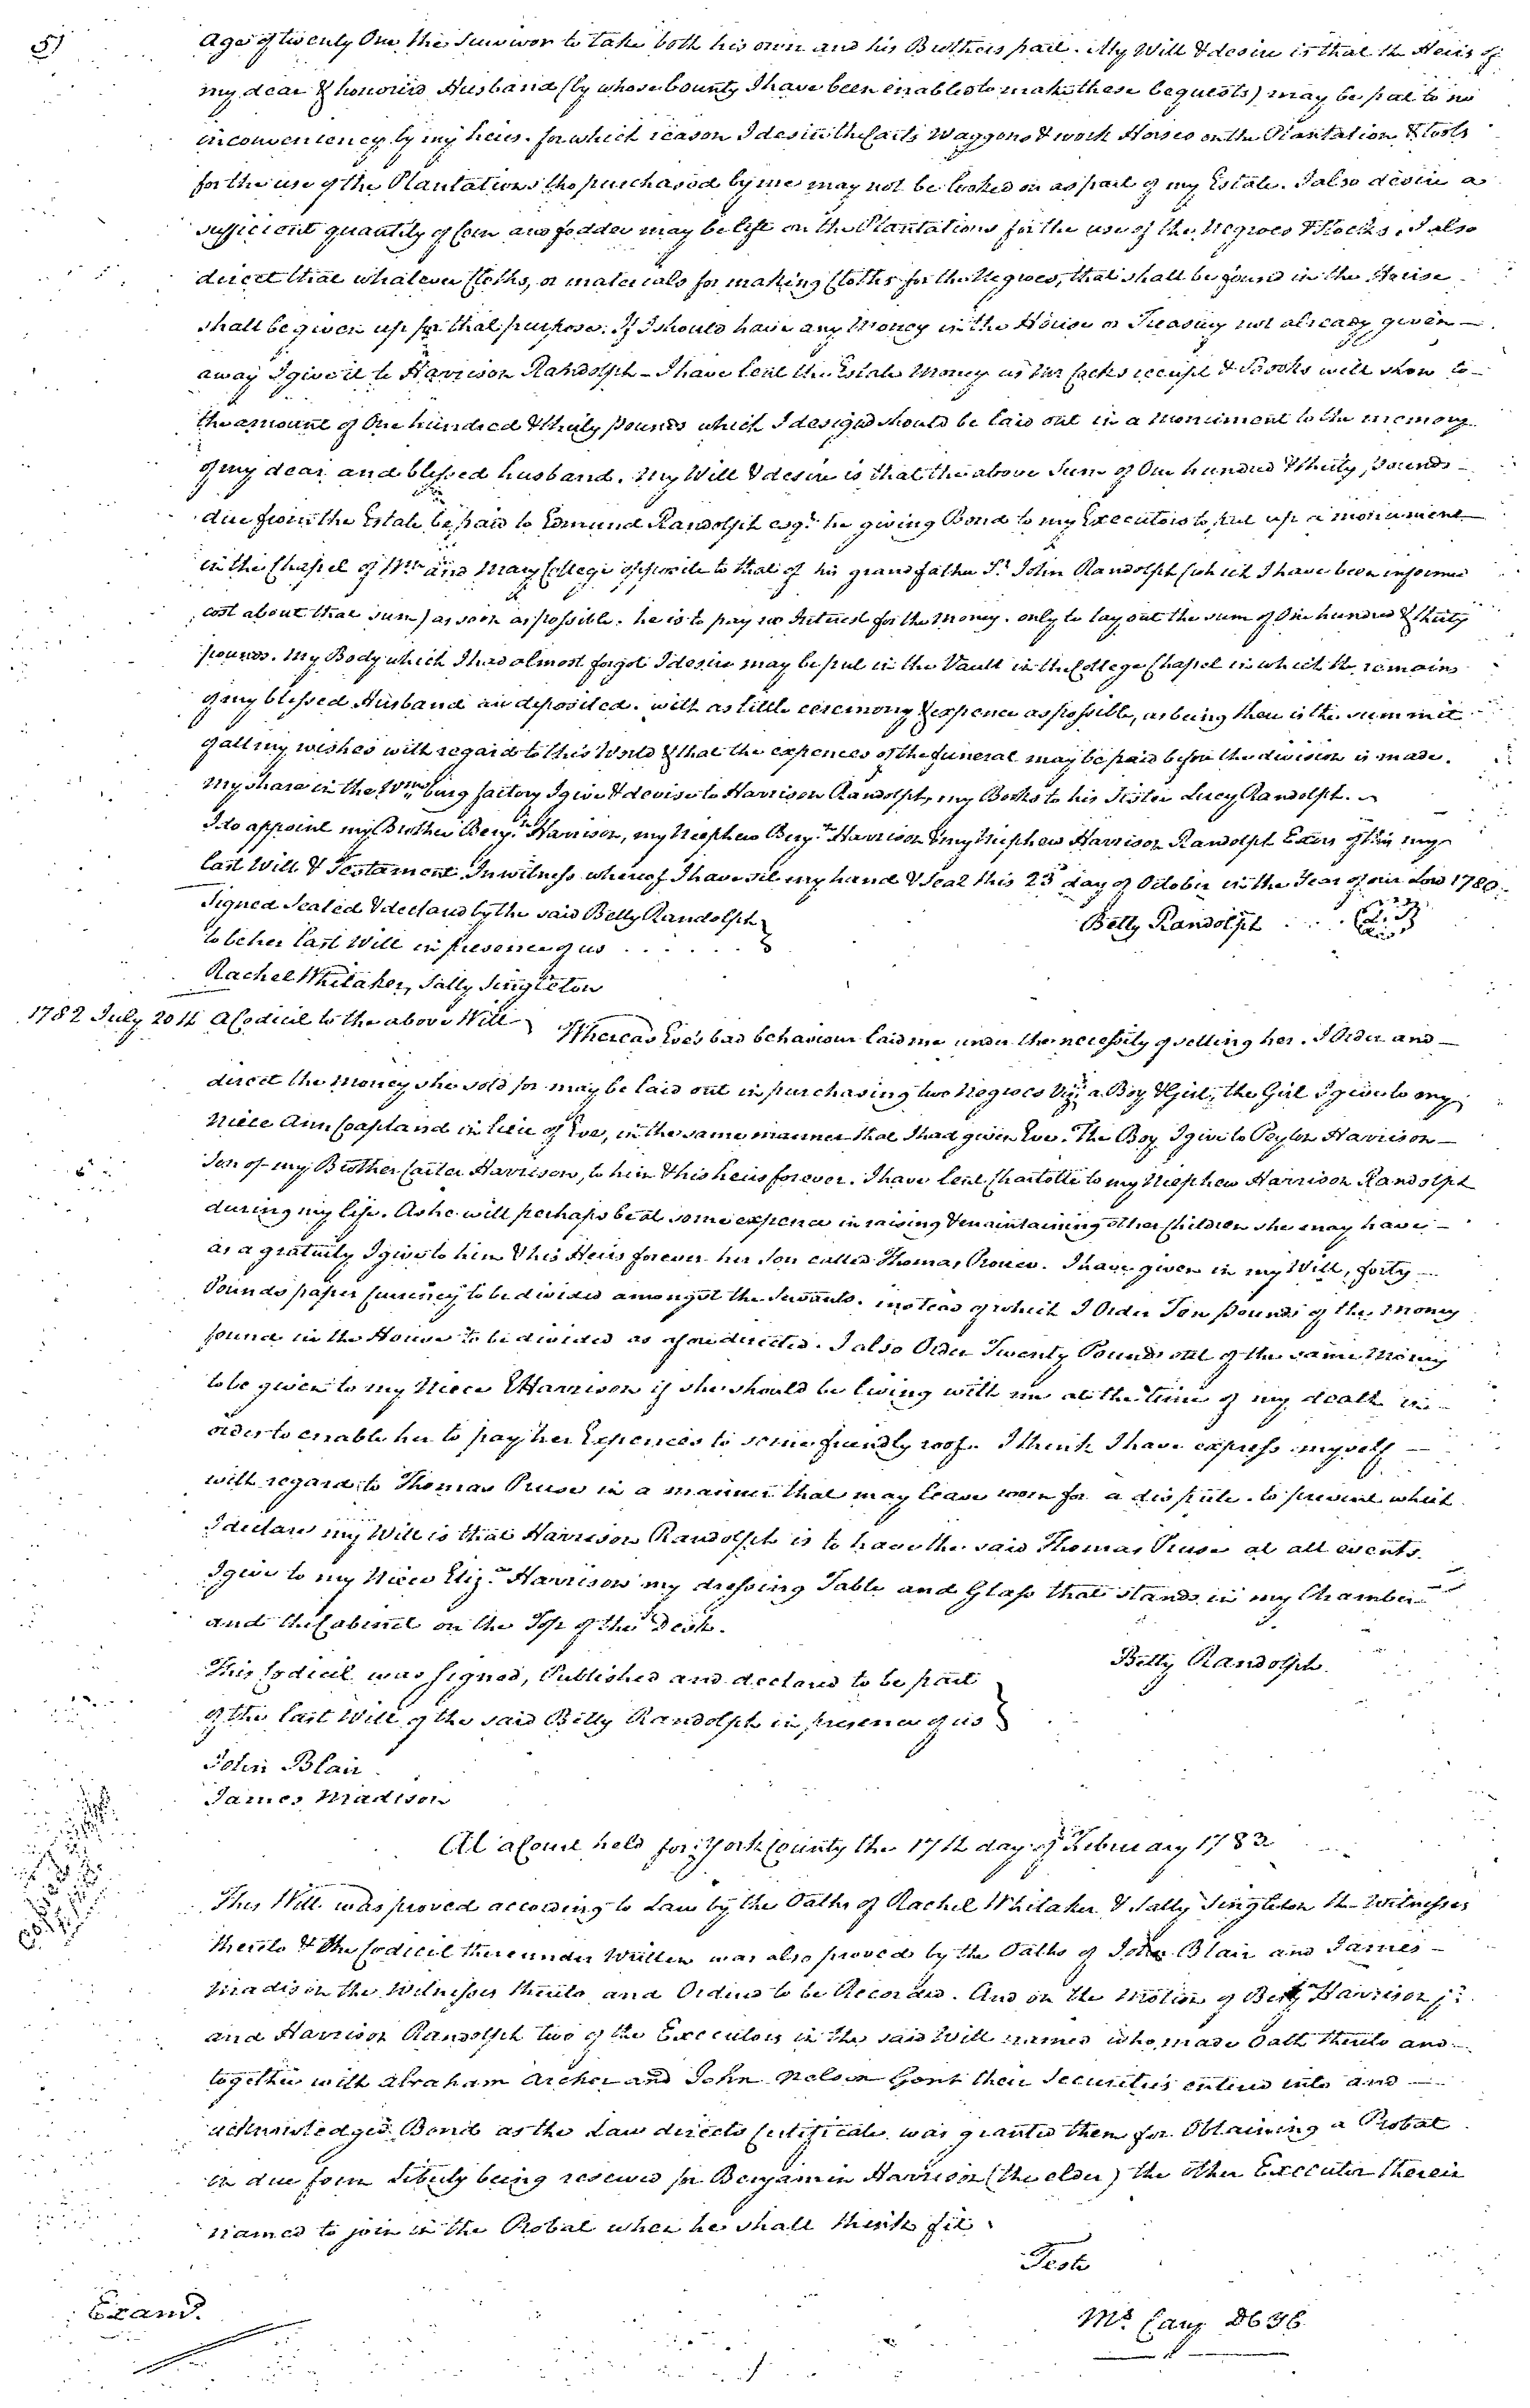 51
Age of twenty One the Survivor to take both his own and his Brothers part. My Will & desire is that the Heirs of
my dear & honour'd Husband (by whose bounty I have been enabled to make these bequests) may be put to no
inconveniency by my heirs. for which reason I desire the Carts Waggons & work Horses on the Plantation & tools
for the use of the Plantations tho purchased by me may not be looked on as part of my Estate. I also desire a
sufficient quantity of Corn and fodder may be left on the Plantations for the use of the Negroes & Stocks. I also
direct that whatever Cloths, or materials for making Cloths for the Negroes, that shall be found in the House
shall be given up for that purpose. If I should have any Money in the House or Treasury not already given
away I give it to Harrison Randolph - I have lent the Estate Money as Mr Cocks receipt & Books will show to
the amount of One hundred & thirty pounds which I design'd should be laid out in a monument to the memory
of my dear and blessed husband. My Will & desire is that the above Sum of One hundred & thirty pounds
due from the Estate be paid to Edmund Randolph esqr he giving Bond to my Executors to put up a monument
in the Chapel of Wm and Mary College opposite to that of his grandfather Sr John Randolph (which I have been informed
cost about that sum) as soon as possible. he is to pay no Interest for the money. only to lay out the sum of One hundred & thirty
pounds. My Body which I had almost forgot I desire may be put in the Vault in the College Chapel in which the remains
of my blessed Husband are deposited. with as little ceremony & expence as possible, as being there is the summit
of all my wishes with regard to this World & that the expences of the funeral may be paid before the division is made.
My share in the Wmsburg factory I give & devise to Harrison Randolph, my Books to his Sister Lucy Randolph.
I do appoint my Brother Benja Harrison, my Nephew Benja Harrison & my Nephew Harrison Randolph Exors of this my
last Will & Testament. In witness whereof I have set my hand & Seal this 23d day of October in the Year of our Lord 1780.
Signed Sealed & declared by the said Betty Randolph
to be her last Will in presence of us
Betty Randolph (L.S.)
Rachel Whitaker, Sally Singleton
1782 July 20th A Codicil to the above Will
Whereas Eve's bad behaviour laid me under the necessity of selling her. I Order and
direct the money she sold for may be laid out in purchasing two Negroes Vizt a Boy & Girl, the Girl I give to my
Niece Ann Coupland in lieu of Eve, in the same manner that I had given Eve. The Boy I give to Peyton Harrison
Son of my Brother Carter Harrison, to him & his heirs forever. I have lent Charlotte to my Nephew Harrison Randolph
during my life. As he will perhaps be at some expence in raising & maintaining other Children she may have
as a gratuity I give to him & his Heirs forever her Son called Thomas Prouce. I have given in my Will, forty
Pounds paper Currency to be divided amongst the Servants. instead of which I Order Ten pounds of the money
found in the House to be divided as afore directed. I also Order Twenty Pounds out of the same Money
to be given to my Niece E Harrison if she should be living with me at the time of my death in
order to enable her to pay her Expences to some friendly roof. I think I have express myself
with regard to Thomas Pruse in a manner that may leave room for a dispute. to prevent which
I declare my Will is that Harrison Randolph is to have the said Thomas Pruse at all events.
I give to my Niece Eliza Harrison my dressing Table and Glass that stands in my Chamber
and the Cabinet on the Top of the Desk.
Betty Randolph
This Codicil was Signed, Published and declared to be part
of the last Will of the said Betty Randolph in presence of us
John Blair
James Madison
At a Court held for York County the 17th day of February 1783
This Will was proved according to Law by the Oaths of Rachel Whitaker & Sally Singleton the Witnesses
thereto & the Codicil thereunder Written was also proved by the Oaths of John Blair and James
Madison the Witnesses thereto and Ordered to be Recorded. And on the Motion of Benja Harrison jr
and Harrison Randolph two of the Executors in the said Will named who made Oath thereto and
together with Abraham Archer and John Nelson Gent their Securities entered into and
acknowledged Bond as the Law directs Certificate was granted them for Obtaining a Probat
in due form Liberty being reserved for Benjamin Harrison (the elder) the other Executor therein
named to join in the Probat when he shall think fit
Teste
Exand.